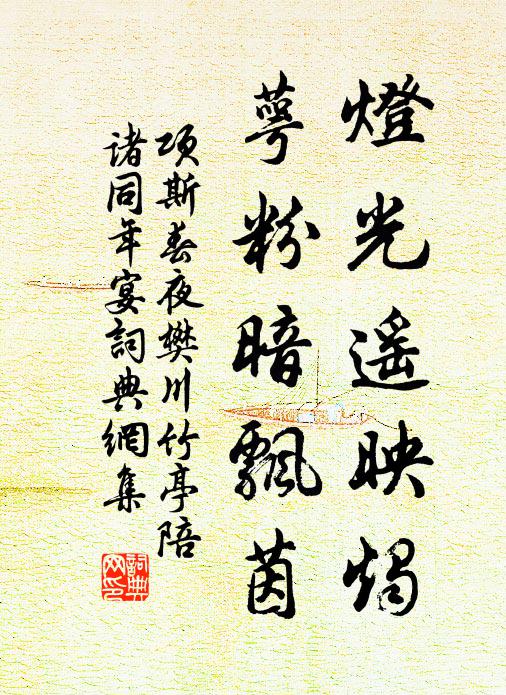 燈光遥映燭
萼粉暗飄茵
项斯春夜樊川竹亭陪
诸同年宴詞典網集
詞典网印